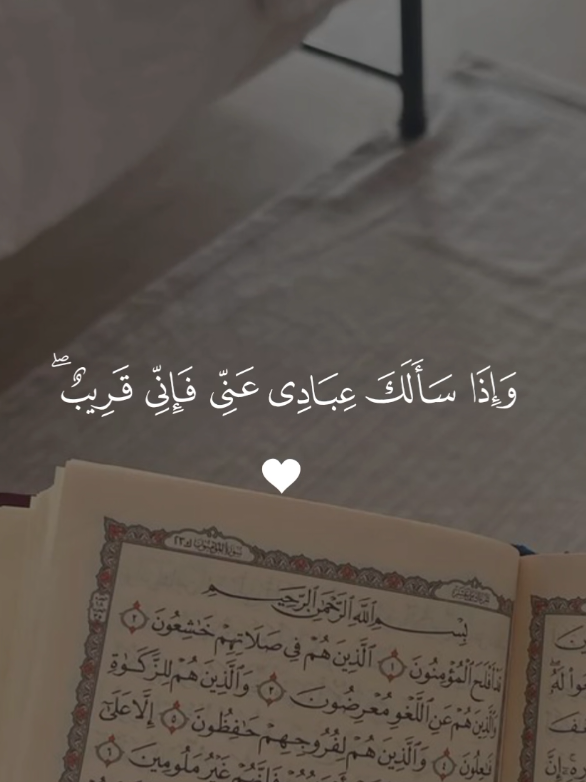 وَإِذَا سَأَلَكَ عِبَادِى عَنِّى فَإِنِّى قَرِيبٌ ۖ
بِسْمِ ٱللَّهِ ٱلرَّحْمَٰنِ ٱلرَّحِيمِ
قَدْ أَفْلَحَ ٱلْمُؤْمِنُونَ ١ ٱلَّذِينَ هُمْ فِى صَلَاتِهِمْ خَٰشِعُونَ ٢
وَٱلَّذِينَ هُمْ عَنِ ٱللَّغْوِ مُعْرِضُونَ ٣ وَٱلَّذِينَ هُمْ لِلزَّكَوٰةِ
فَٰعِلُونَ ٤ وَٱلَّذِينَ هُمْ لِفُرُوجِهِمْ حَٰفِظُونَ ٥ إِلَّا عَلَىٰٓ
فَإِنَّهُمْ غَيْرُ مَلُومِينَ ٦